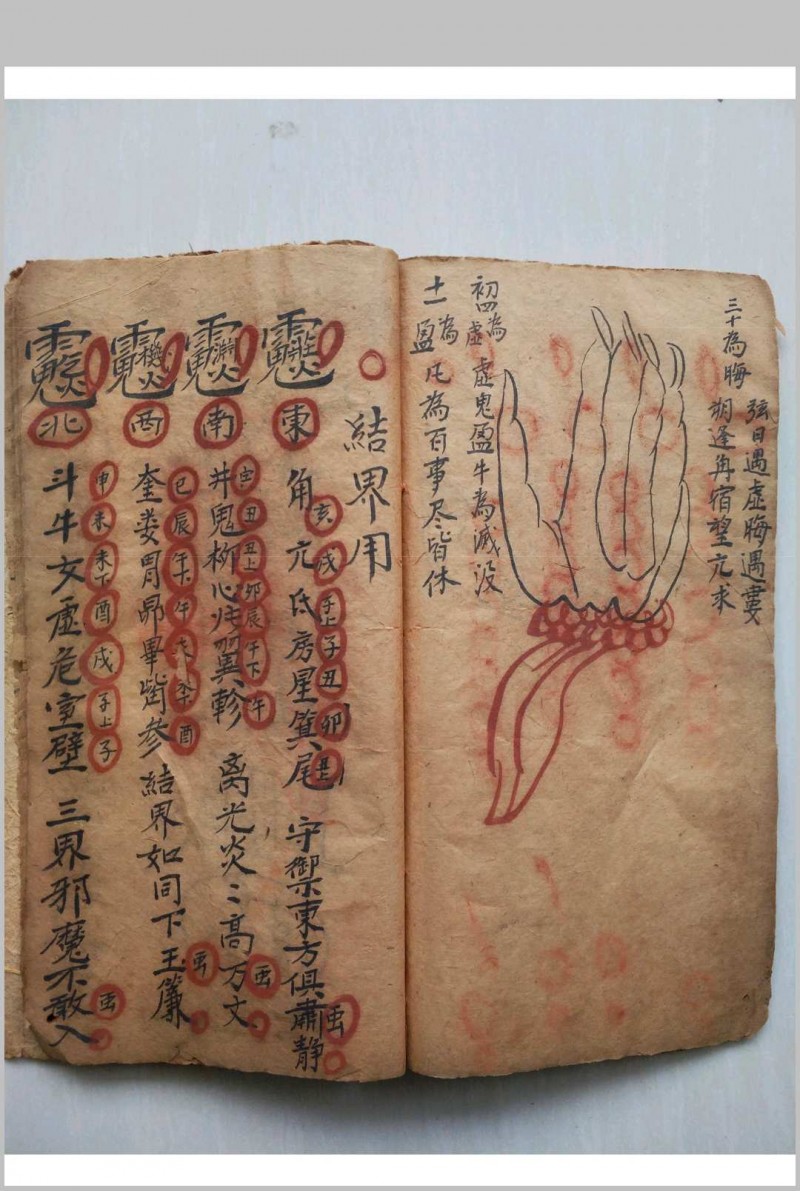 弦日遇虛晦遇婁
三十為晦
朔逢角宿望亢求
初四為虛
虛鬼盈牛為滅没
十一為盈
凡為百事尽皆休
結界用
東 角亢氐房星箕尾 守禦東方俱肅静
亥 戌 子上 子 丑 卯 丑上
南 井鬼柳 翼軫 离光炎〻高万丈
寅 丑 丑上 卯 辰 午下 午
西 奎娄胃昴畢觜参 結界如同下玉簾
巳 辰 午下 午 酉
北 斗牛女虚危室壁 三界邪魔不敢入
申 未 未下 酉 戌 子上 子